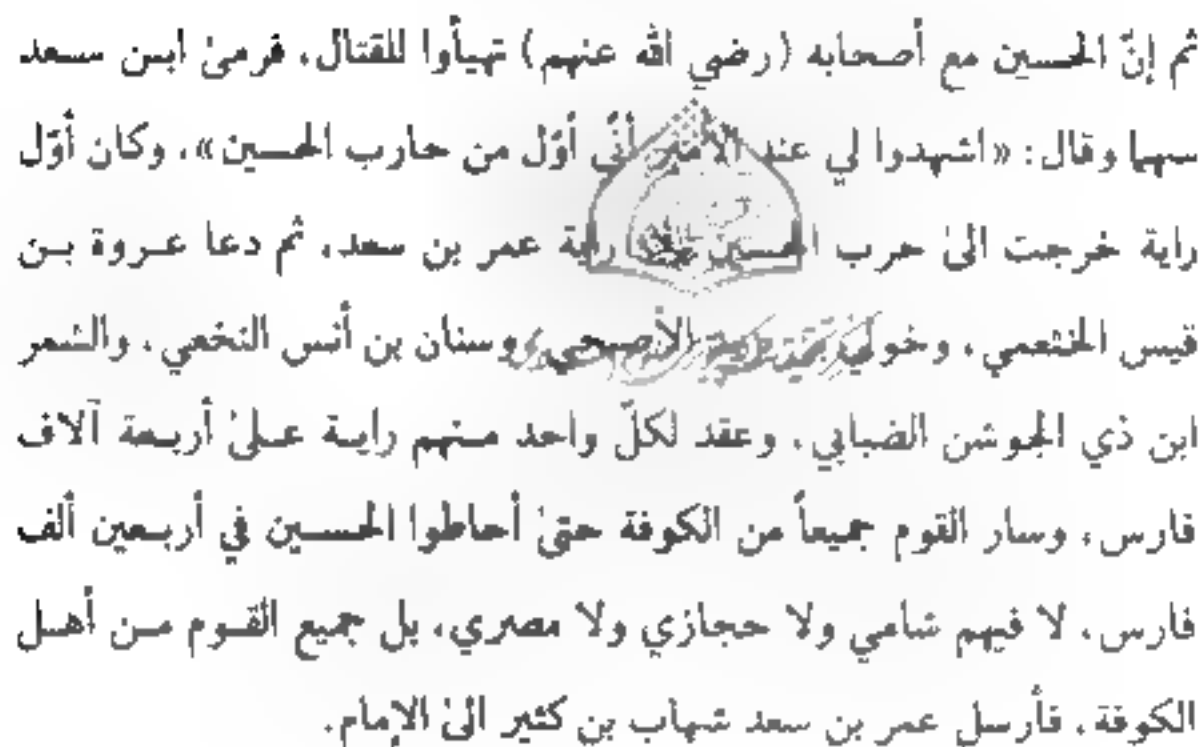 ثم إنّ الحسين مع أصحابه (رضي الله عنهم) تهيأوا للقتال، فرمىٰ ابن سعد
سهما وقال: «اشهدوا لي عند الأمير أنّي أوّل من حارب الحسين»، وكان أوّل
راية خرجت الىٰ حرب الحسين راية عمر بن سعد، ثم دعا عروة بن
قيس الخثعمي، وخولي الأصبحي وسنان بن أنس النخعي، والشمر
ابن ذي الجوشن الضبابي، وعقد لكلّ واحد منهم راية علىٰ أربعة آلاف
فارس، وسار القوم جميعاً من الكوفة حتىٰ أحاطوا الحسين في أربعين ألف
فارس، لا فيهم شامي ولا حجازي ولا مصري، بل جميع القوم من أهل
الكوفة، فأرسل عمر بن سعد شهاب بن كثير الىٰ الإمام.